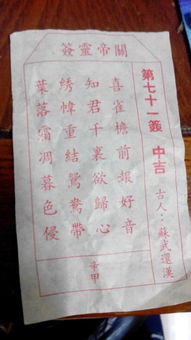 關帝靈簽
第七十一簽 中吉 古人：蘇武還漢
喜雀檐前報好音
知君千裏欲歸心
綉幃重結鴛鴦帶
葉落霜凋暮色侵